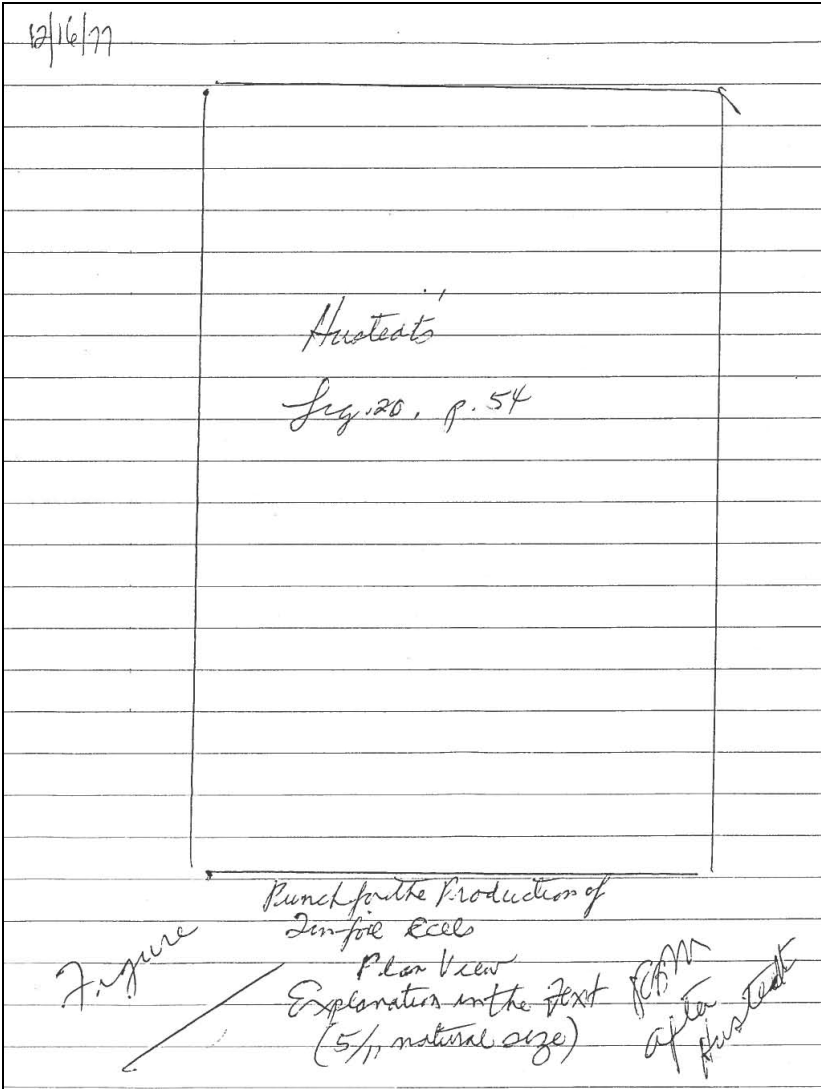 12/16/77
Hustedt's
Fig. 20, p. 54
Punch for the Production of
Tin-foil Cells
Plan View
Explanation in the Text
(5/11 natural size)
Figure
after
Hustedt